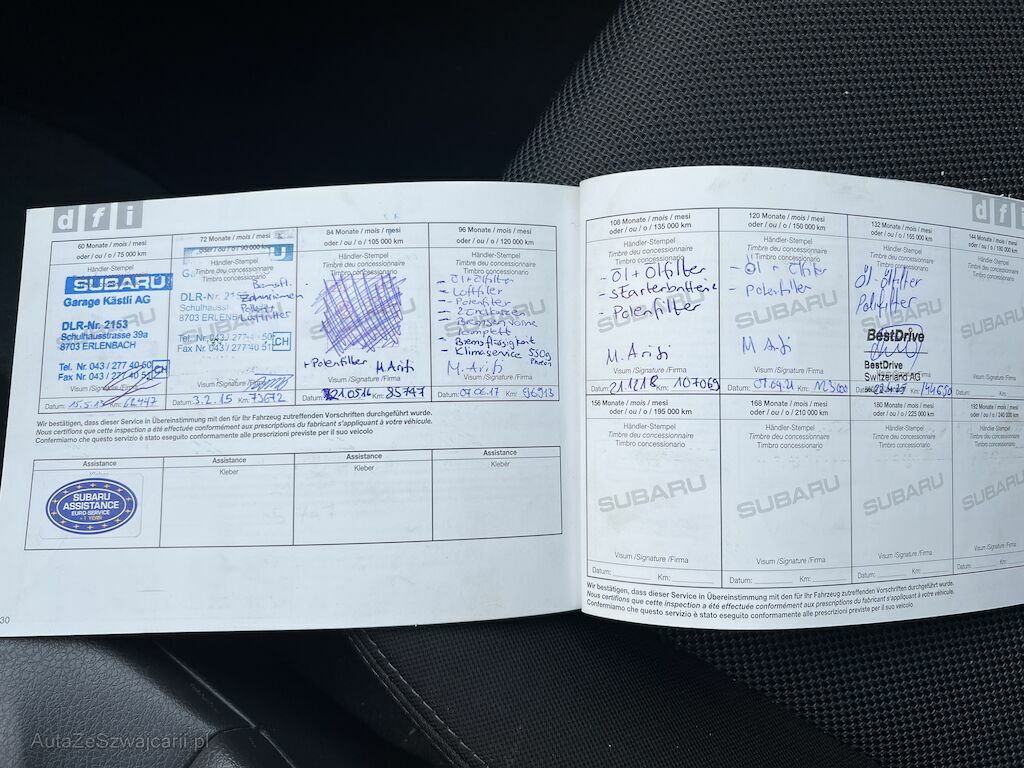 dfi
60 Monate / mois / mesi
oder / ou / o / 75 000 km
Händler-Stempel
Timbre du concessionnaire
SUBARU
Garage Kästli AG
DLR-Nr. 2153
Schulhausstrasse 39a
8703 ERLENBACH
Tel. Nr. 043 / 277 40 50
Fax Nr. 043 / 277 40 51
CH
Visum /Signature /Firma
Datum: 15.5.13 Km:
72 Monate / mois / mesi
oder / ou / o / 90 000 km
Händler-Stempel
Timbre du concessionnaire
Timbro concessionario
DLR-Nr.
8703 ERLENBACH
Tel. Nr. 043 / 277 40 50
Fax Nr. 043 / 277 40 51
CH
Visum /Signature /Firma
Datum: 3.2.15 Km: 73672
84 Monate / mois / mesi
oder / ou / o / 105 000 km
Händler-Stempel
Timbre du concessionnaire
Timbro concessionario
+ Polenfilter M Arifi
Visum /Signature /Firma
Km: 85747
96 Monate / mois / mesi
oder / ou / o / 120 000 km
Händler-Stempel
Timbre du concessionnaire
Timbro concessionario
- Öl + Ölfilter
- Luftfilter
- Polenfilter
- Bremsen vorne
komplett
- Bremsflüssigkeit
- Klimaservice 550g
M. Arifi
Visum /Signature /Firma
Datum: 07.06.17 Km: 96913
Wir bestätigen, dass dieser Service in Übereinstimmung mit den für Ihr Fahrzeug zutreffenden Vorschriften durchgeführt wurde.
Nous certifions que cette inspection a été effectuée conformément aux prescriptions du fabricant s'appliquant à votre véhicule.
Confermiamo che questo servizio è stato eseguito conformamente alle prescrizioni previste per il suo veicolo
Assistance
Kleber
SUBARU
ASSISTANCE
EURO-SERVICE
1 YEAR
Assistance
Kleber
Assistance
Kleber
Assistance
Kleber
30
dfi
108 Monate / mois / mesi
oder / ou / o / 135 000 km
Händler-Stempel
Timbre du concessionnaire
Timbro concessionario
- Öl + Ölfilter
- Starterbatterie
- Polenfilter
SUBARU
M. Arifi
Visum /Signature /Firma
Datum: 21.12.18 Km: 107069
120 Monate / mois / mesi
oder / ou / o / 150 000 km
Händler-Stempel
Timbre du concessionnaire
Timbro concessionario
- Öl + Ölfilter
- Polenfilter
SUBARU
M Arifi
Visum /Signature /Firma
Datum: 07.04.21 Km: 113100
132 Monate / mois / mesi
oder / ou / o / 165 000 km
Händler-Stempel
Timbre du concessionnaire
Öl-ölfilter
BestDrive
BestDrive
Switzerland AG
144 Monate / mois / mesi
oder / ou / o / 180 000 km
Händler-Stempel
Timbre du concessionnaire
Timbro concessionario
SUBARU
Visum /Signature /Firma
Datum: Km:
156 Monate / mois / mesi
oder / ou / o / 195 000 km
Händler-Stempel
Timbre du concessionnaire
Timbro concessionario
SUBARU
Visum /Signature /Firma
Datum: Km:
168 Monate / mois / mesi
oder / ou / o / 210 000 km
Händler-Stempel
Timbre du concessionnaire
Timbro concessionario
SUBARU
Visum /Signature /Firma
Datum: Km:
180 Monate / mois / mesi
oder / ou / o / 225 000 km
Händler-Stempel
Timbre du concessionnaire
Timbro concessionario
SUBARU
Visum /Signature /Firma
Datum: Km:
192 Monate / mois / mesi
oder / ou / o / 240 000 km
Händler-Stempel
Timbre du concessionnaire
Timbro concessionario
SUBARU
Visum /Signature /Firma
Datum: Km:
Wir bestätigen, dass dieser Service in Übereinstimmung mit den für Ihr Fahrzeug zutreffenden Vorschriften durchgeführt wurde.
Nous certifions que cette inspection a été effectuée conformément aux prescriptions du fabricant s'appliquant à votre véhicule.
Confermiamo che questo servizio è stato eseguito conformamente alle prescrizioni previste per il suo veicolo
AutaZeSzwajcarii.pl